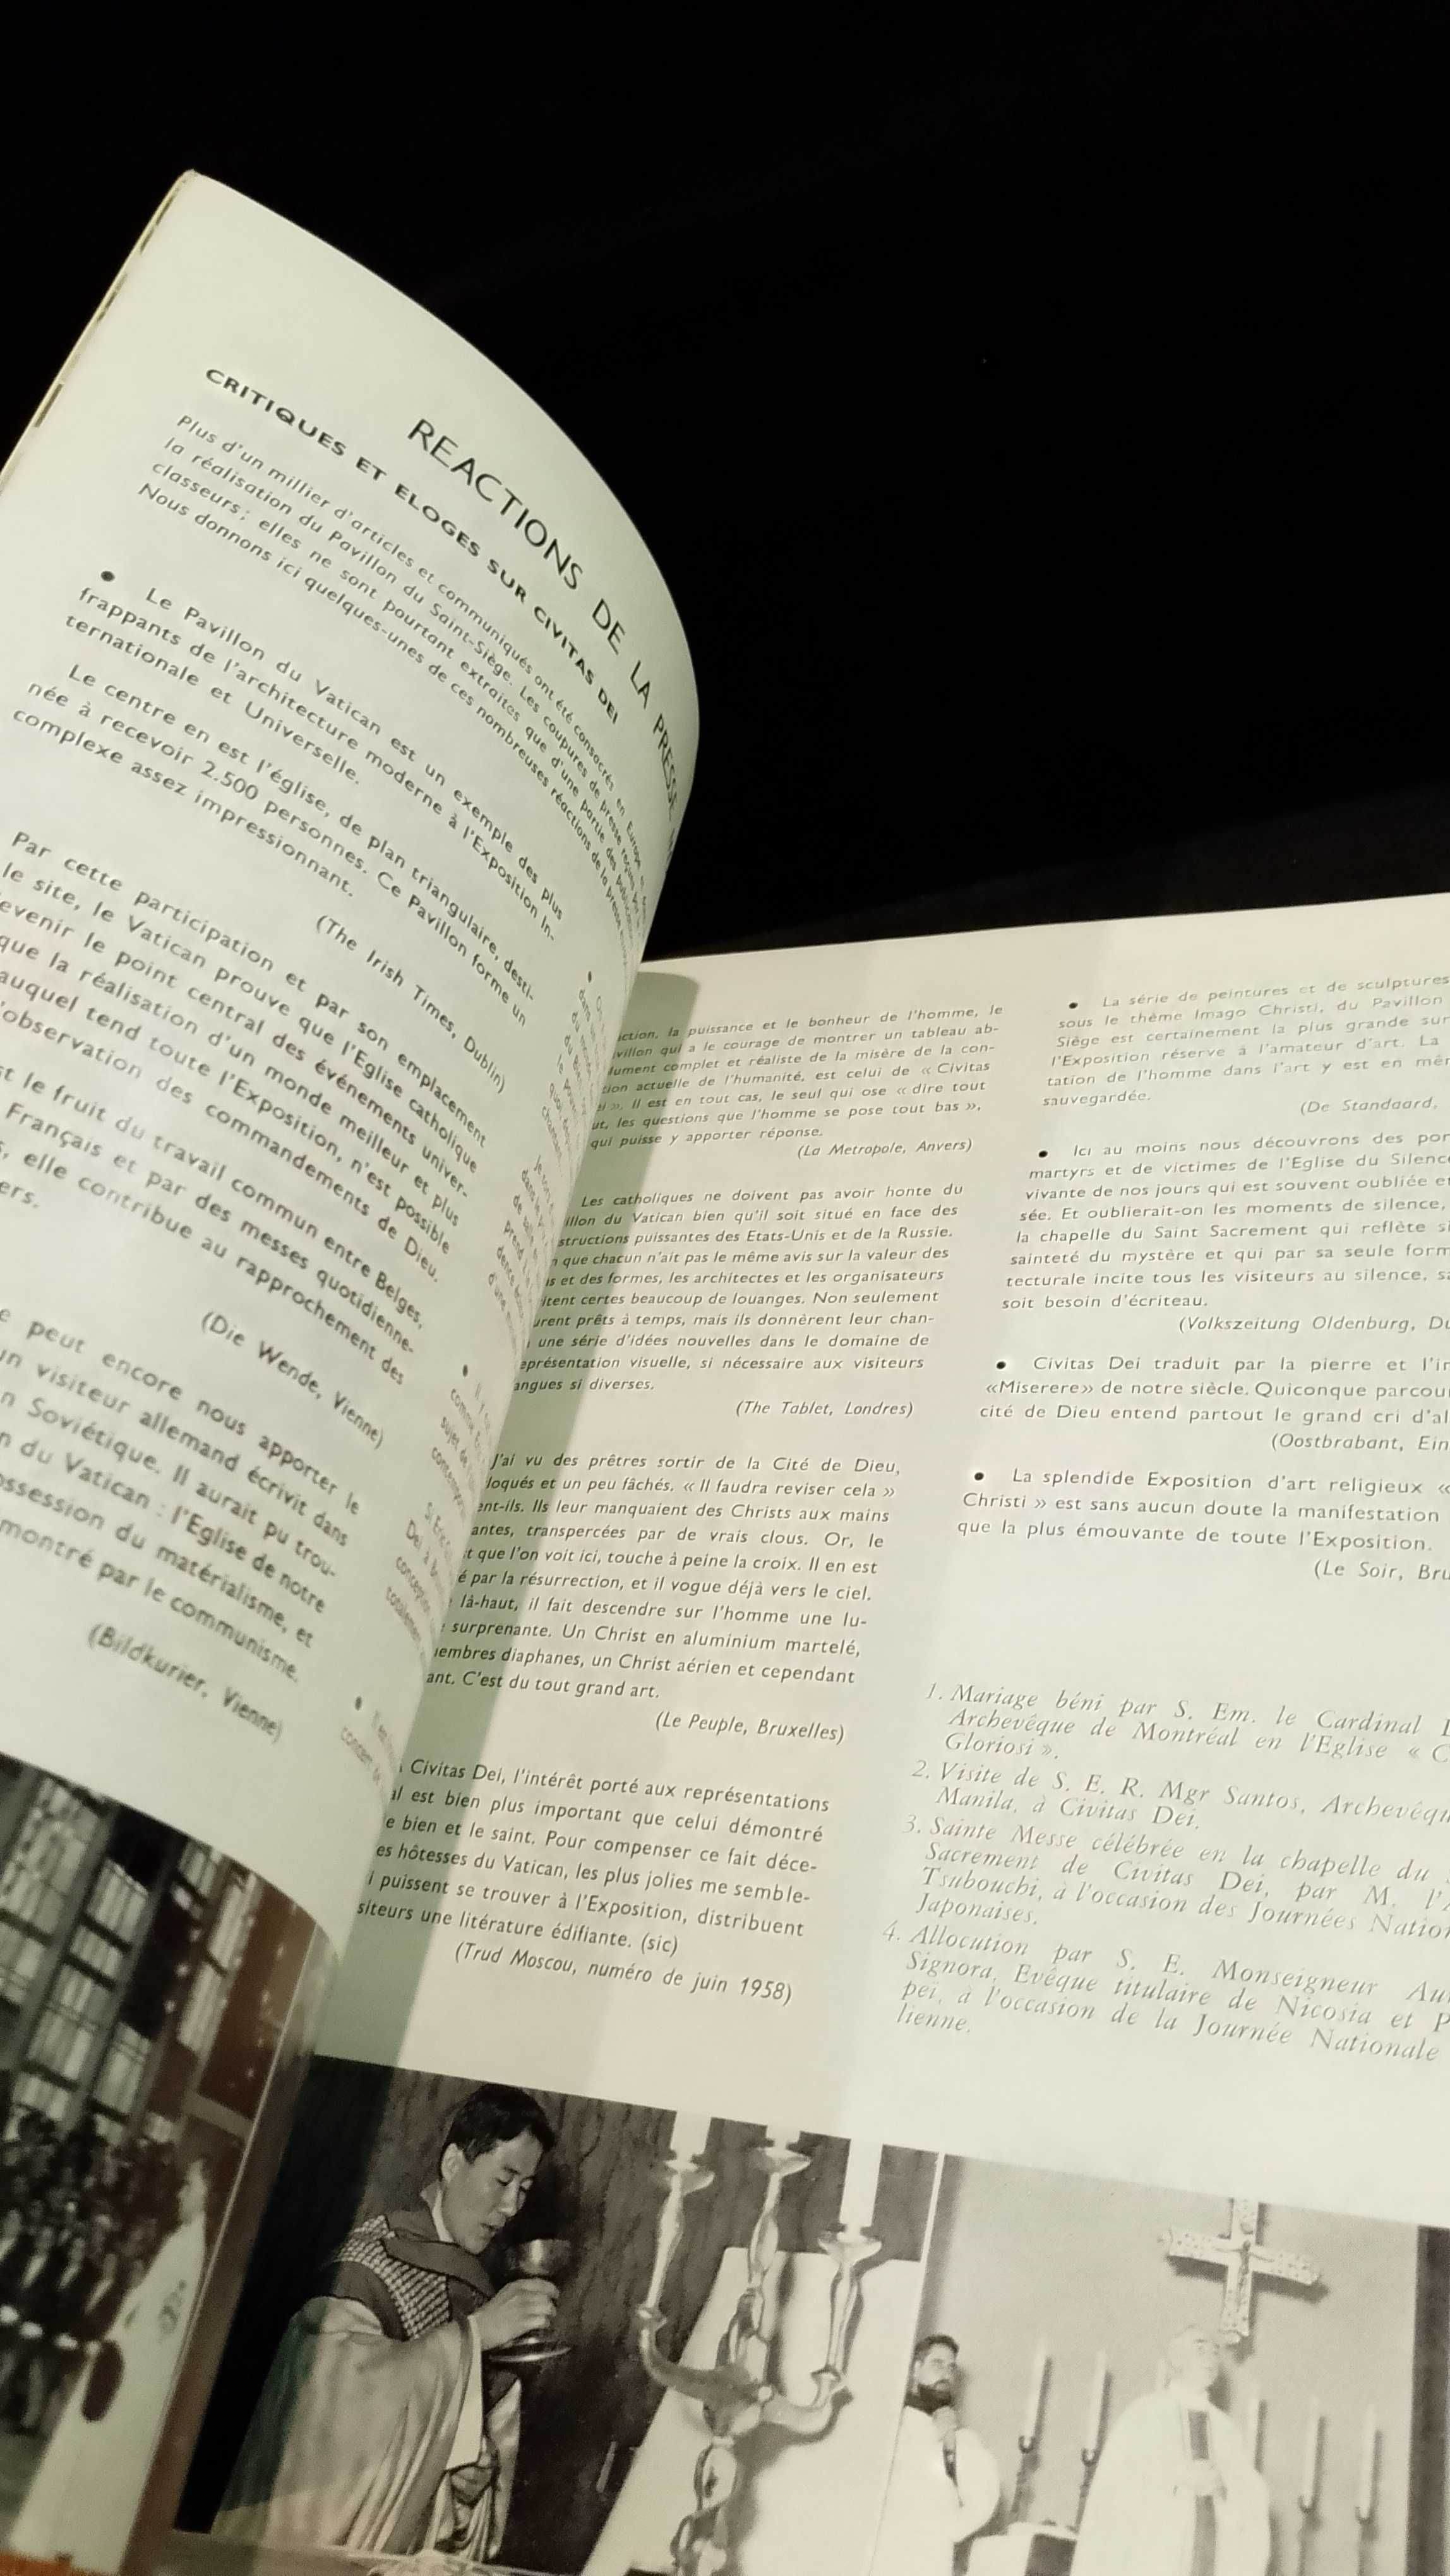 REACTIONS DE LA PRESSE
CRITIQUES ET ELOGES SUR CIVITAS DEI
Plus d'un millier d'articles et communiqués ont été consacrés en Europe
la réalisation du Pavillon du Saint-Siège. Les coupures de presse reçues
classeurs; elles ne sont pourtant extraites que d'une partie des
Nous donnons ici quelques-unes de ces nombreuses réactions de la presse
• Le Pavillon du Vatican est un exemple des plus
frappants de l'architecture moderne à l'Exposition In-
ternationale et Universelle.
Le centre en est l'église, de plan triangulaire, desti-
née à recevoir 2.500 personnes. Ce Pavillon forme un
complexe assez impressionnant.
(The Irish Times, Dublin)
Par cette participation et par son emplacement
le site, le Vatican prouve que l'Eglise catholique
evenir le point central des événements univer-
que la réalisation d'un monde meilleur et plus
auquel tend toute l'Exposition, n'est possible
l'observation des commandements de Dieu.
st le fruit du travail commun entre Belges,
Français et par des messes quotidienne-
s, elle contribue au rapprochement des
ers.
(Die Wende, Vienne)
e peut encore nous apporter le
un visiteur allemand écrivit dans
n Soviétique. Il aurait pu trou-
n du Vatican : l'Eglise de notre
ossession du matérialisme, et
montré par le communisme.
(Bildkurier, Vienne)
ction, la puissance et le bonheur de l'homme, le
villon qui a le courage de montrer un tableau ab-
lument complet et réaliste de la misère de la con-
tion actuelle de l'humanité, est celui de « Civitas
ei ». Il est en tout cas, le seul qui ose « dire tout
ut, les questions que l'homme se pose tout bas »,
qui puisse y apporter réponse.
(La Metropole, Anvers)
Les catholiques ne doivent pas avoir honte du
illon du Vatican bien qu'il soit situé en face des
structions puissantes des Etats-Unis et de la Russie.
n que chacun n'ait pas le même avis sur la valeur des
s et des formes, les architectes et les organisateurs
itent certes beaucoup de louanges. Non seulement
urent prêts à temps, mais ils donnèrent leur chan-
une série d'idées nouvelles dans le domaine de
eprésentation visuelle, si nécessaire aux visiteurs
angues si diverses.
(The Tablet, Londres)
J'ai vu des prêtres sortir de la Cité de Dieu,
loqués et un peu fâchés. « Il faudra reviser cela »
ent-ils. Ils leur manquaient des Christs aux mains
antes, transpercées par de vrais clous. Or, le
t que l'on voit ici, touche à peine la croix. Il en est
é par la résurrection, et il vogue déjà vers le ciel.
là-haut, il fait descendre sur l'homme une lu-
surprenante. Un Christ en aluminium martelé,
embres diaphanes, un Christ aérien et cependant
ant. C'est du tout grand art.
(Le Peuple, Bruxelles)
Civitas Dei, l'intérêt porté aux représentations
al est bien plus important que celui démontré
e bien et le saint. Pour compenser ce fait déce-
es hôtesses du Vatican, les plus jolies me semble-
i puissent se trouver à l'Exposition, distribuent
siteurs une litérature édifiante. (sic)
(Trud Moscou, numéro de juin 1958)
• La série de peintures et de sculptures
sous le thème Imago Christi, du Pavillon
Siège est certainement la plus grande sur
l'Exposition réserve à l'amateur d'art. La
tation de l'homme dans l'art y est en mêm
sauvegardée.
(De Standaard,
• Ici au moins nous découvrons des por
martyrs et de victimes de l'Eglise du Silenc
vivante de nos jours qui est souvent oubliée et
sée. Et oublierait-on les moments de silence,
la chapelle du Saint Sacrement qui reflète si
sainteté du mystère et qui par sa seule form
tecturale incite tous les visiteurs au silence, sa
soit besoin d'écriteau.
(Volkszeitung Oldenburg, Du
• Civitas Dei traduit par la pierre et l'i
«Miserere» de notre siècle. Quiconque parcou
cité de Dieu entend partout le grand cri d'al
(Oostbrabant, Ein
• La splendide Exposition d'art religieux «
Christi » est sans aucun doute la manifestation
que la plus émouvante de toute l'Exposition.
(Le Soir, Bru
1. Mariage béni par S. Em. le Cardinal L
Archevêque de Montréal en l'Eglise « C
Gloriosi ».
2. Visite de S. E. R. Mgr Santos, Archevêqu
Manila, à Civitas Dei.
3. Sainte Messe célébrée en la chapelle du
Sacrement de Civitas Dei, par M. l'A
Tsubouchi, à l'occasion des Journées Nation
Japonaises.
4. Allocution par S. E. Monseigneur Au
Signora, Evêque titulaire de Nicosia et P
pei, à l'occasion de la Journée Nationale
lienne.